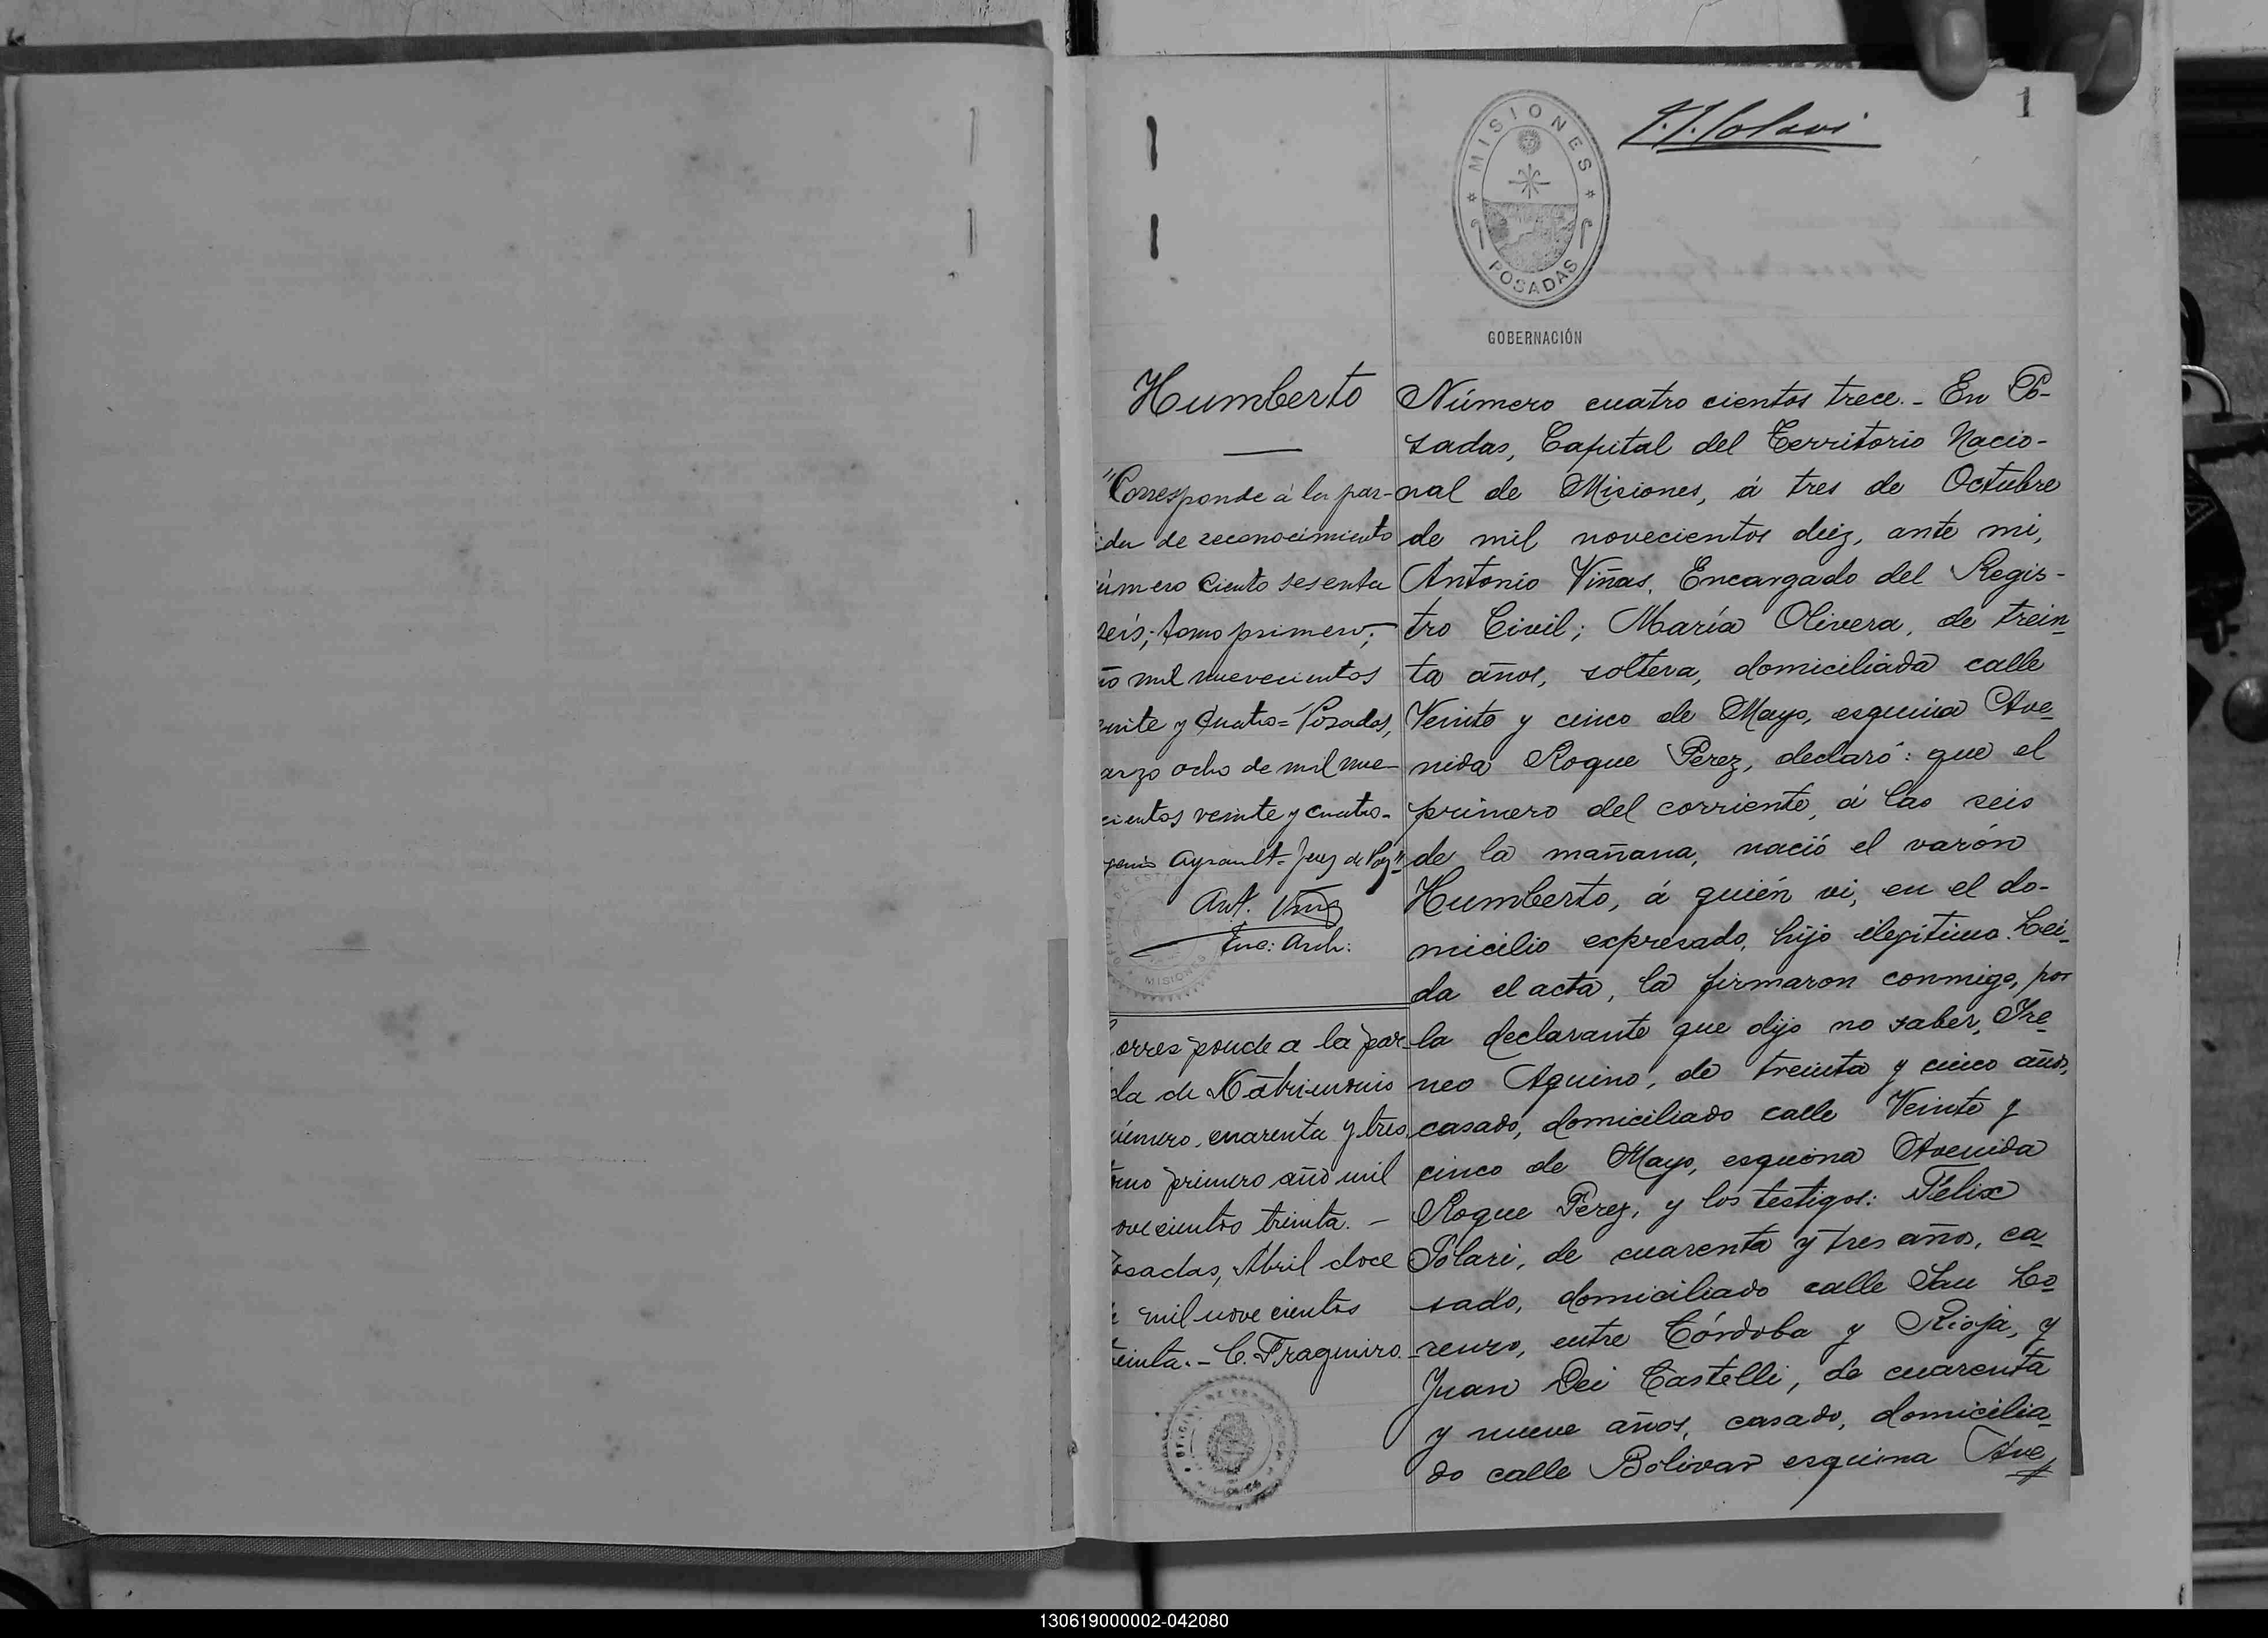 1
MISIONES
POSADAS
GOBERNACIÓN
Humberto
"Corresponde á la par-
ida de reconocimiento
úmero Ciento sesenta
seis; tomo primero;
ño mil nuevecientos
einte y Cuatro = Posadas,
arzo ocho de mil nue-
cientos veinte y cuatro-
genio Ayrault = Juez de Paz"
Ant. Viñas
Enc: Arch:
MISIONES
orresponde a la par-
da de Matrimonio
úmero, cuarenta y tres
omo primero año mil
ovecientos treinta. -
osadas, Abril doce
e mil novecientos
einta. - C. Fragueiro.
Número cuatro cientos trece. - En Po-
sadas, Capital del Territorio Nacio-
nal de Misiones, á tres de Octubre
de mil novecientos diez, ante mi,
Antonio Viñas, Encargado del Regis-
tro Civil; María Olivera, de trein-
ta años, soltera, domiciliada calle
Veinte y cinco de Mayo, esquina Ave-
nida Roque Perez, declaró: que el
primero del corriente, á las seis
de la mañana, nació el varón
Humberto, á quién vi, en el do-
micilio expresado, hijo ilegítimo. Lei-
da el acta, la firmaron conmigo, por
la declarante que dijo no saber, Ire-
neo Aquino, de treinta y cinco años,
casado, domiciliado calle Veinte y
cinco de Mayo, esquina Avenida
Roque Perez, y los testigos: Félix
Solari, de cuarenta y tres años, ca-
sado, domiciliado calle San Lo-
renzo, entre Córdoba y Rioja, y
Juan Dei Castelli, de cuarenta
y nueve años, casado, domicilia-
do calle Bolivar esquina Ave
130619000002-042080